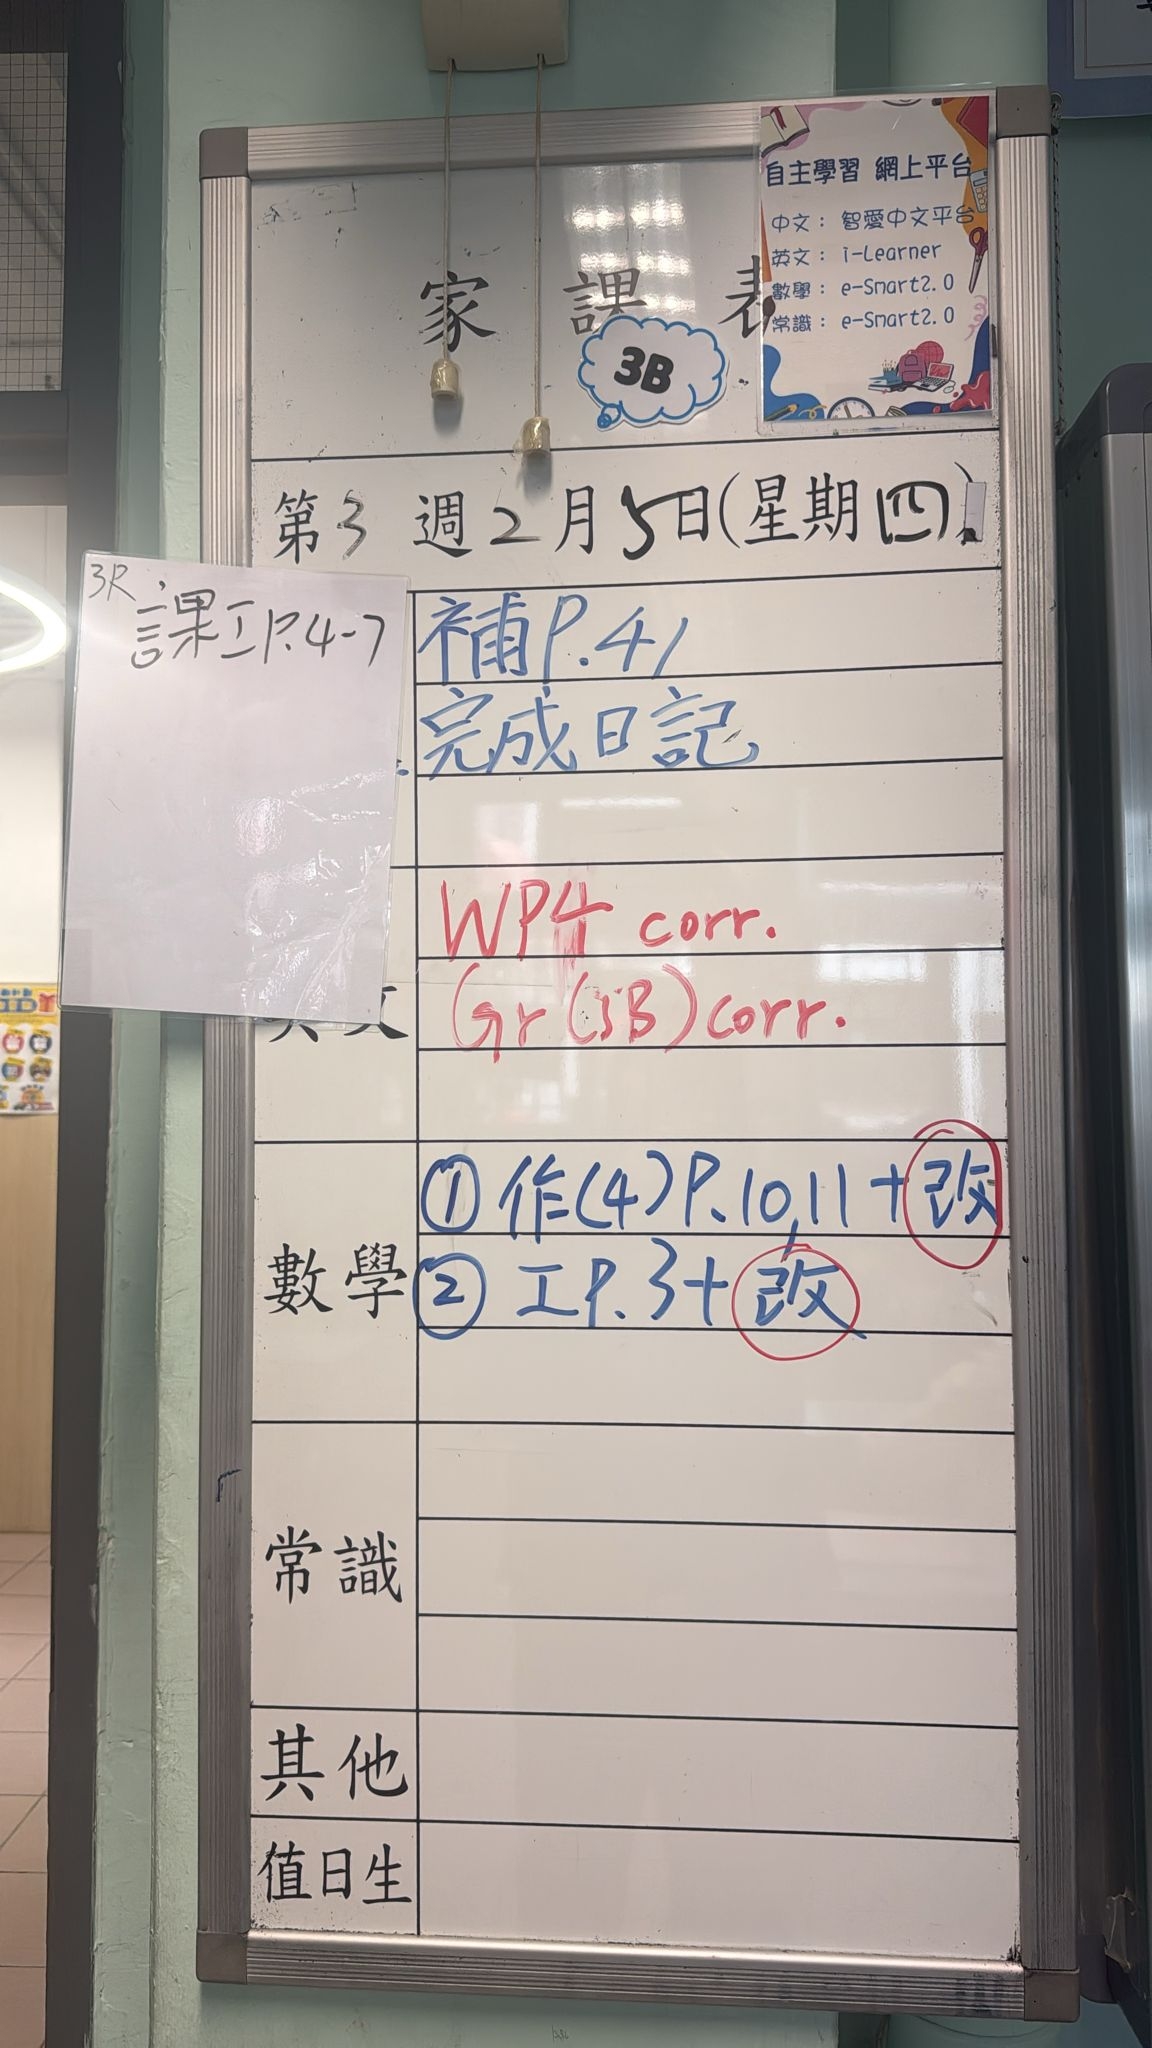 自主學習 網上平台
中文： 智愛中文平台
英文： i-Learner
數學： e-Smart2.0
常識： e-Smart2.0
家 課 表
3B
第 3 週 2 月 5 日(星期 四)
3R
課工P.4-7
補P.41
完成日記
英文
WP4 corr.
Gr (5B) corr.
數學
① 作(4)P.10,11+改
② 工P.3+改
常識
其他
值日生